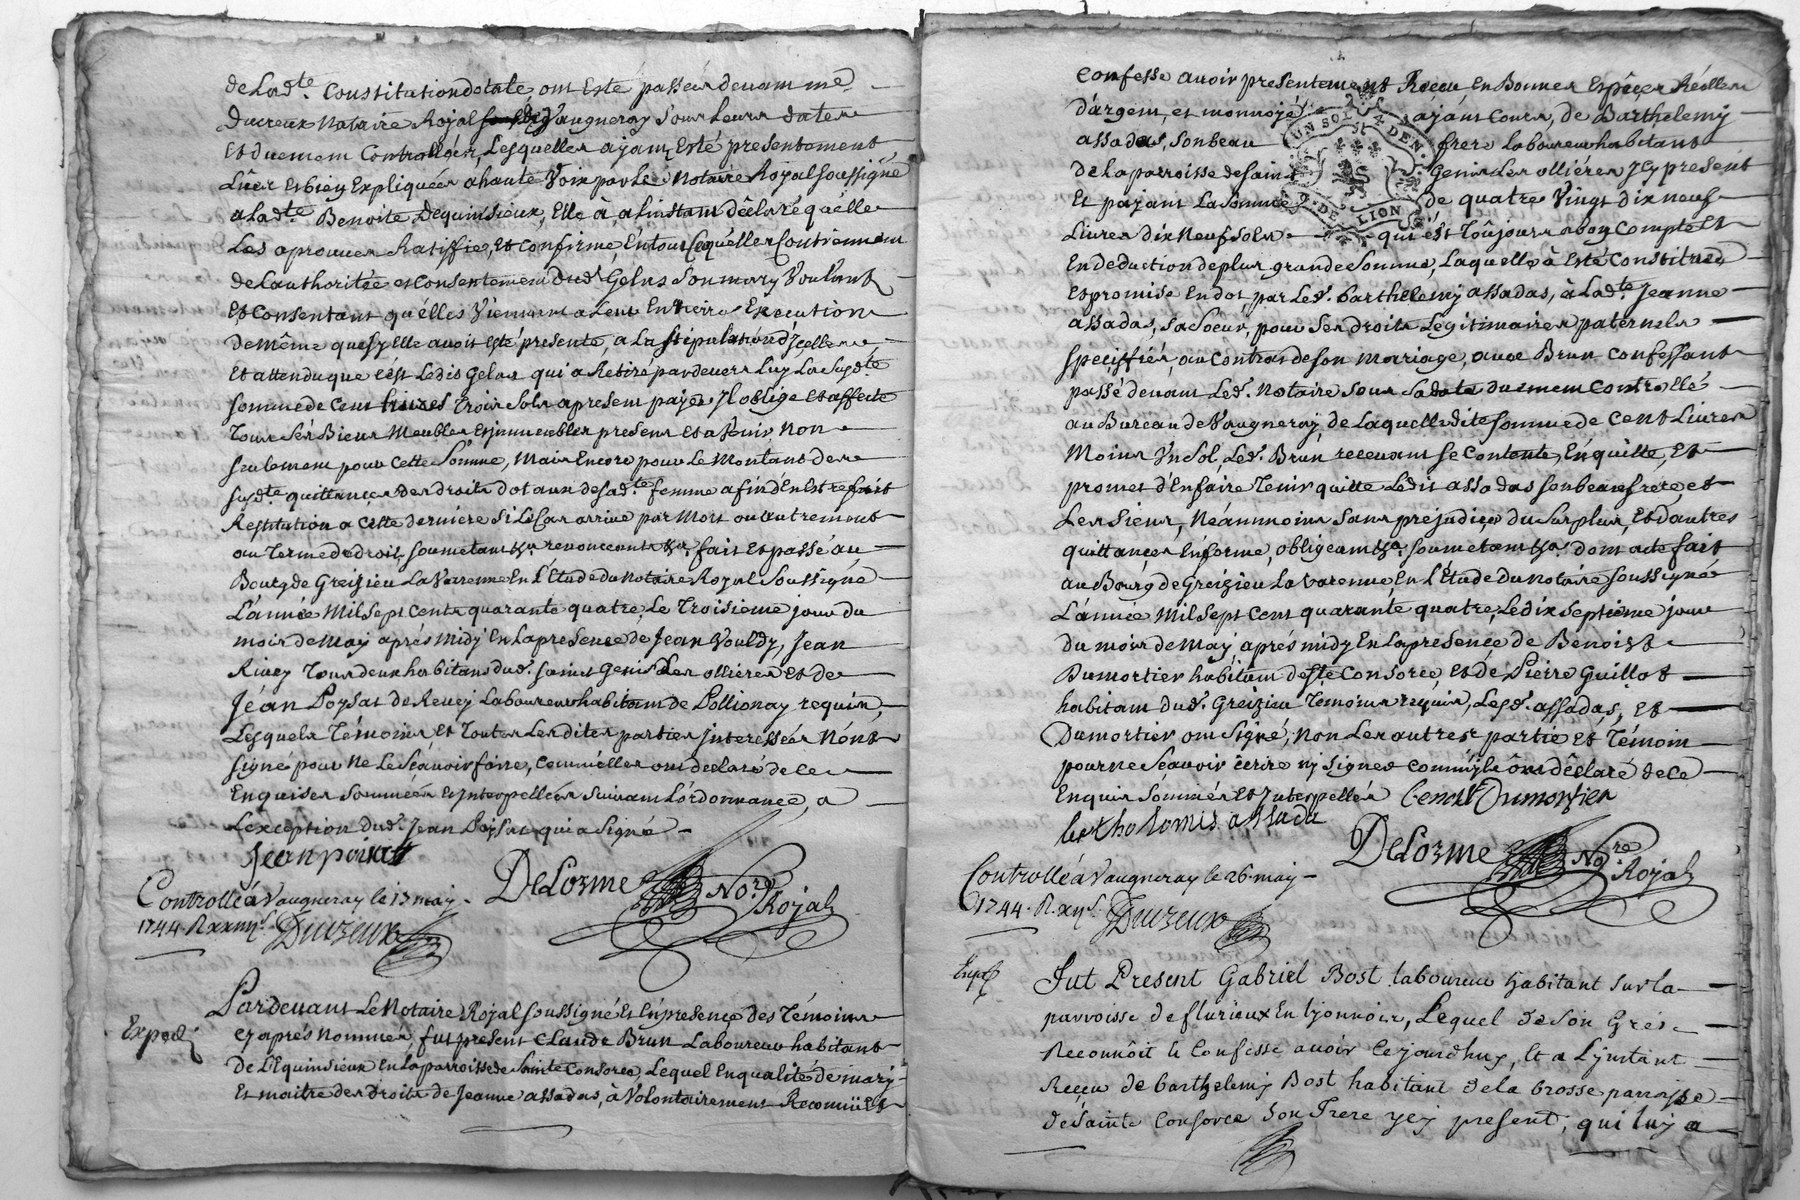 de Lad.te Constitution dotale ont Esté passées devant me
Ducreux Notaire Royal Vaugneray Sous Leurs dates
Et duement Controllées, Lesquelles ayant Esté presentement
Lûes et bien Expliquées a haute Voix par Le Notaire Royal soussigné
a Lad.te Benoite Dequinsieux, Elle à, a Linstant déclaré quelle
Les aprouve, Ratiffie, et Confirme, En tout Ce qu'elles Contiennent
de Lauthoritée et Consentement dud. Gelas Son mary Voulant
Et Consentant qu'élles Viennent a Leur Entiere Execution
De même que sy elle avoit esté présente, a La stipulation d'Jcelles
Et attendu que c'ést Ledit Gelas qui a Retiré pardevers Luy La Susd.te
somme de Cent treizes Trois Sols apresent payée Jl oblige et affecte
Tous Sés Bieux Meubles et jmmeubles presens Et a Venir Non
seulement pour Cette Somme, Mais Encore pour Le Montant des
susd.te quittances des droits dotaux de sad.te femme afin d'En Estre fait
Restitution a Cette derniere Si Le Cas arrive par Mort ou autrement
au Terme de droit, soumetant &a renonceant &a, fait Et passé au
Bourg de Greizieu La Varenne En L'Etude du Notaire Royal Soussigné
L'année Mil Sept Cents quarante quatre, Le Troisieme jour du
mois de May après Midy En La presence de Jean Vouldy, Jean
Rivey Tous deux habitans dud. saint Genis Les ollieres et de
Jéan Poysat de Revey Laboureur habitant de Pollionay requin,
Lesquels Témoins, Et Toutes Les dites parties Jnteressées N'ont
signé pour Ne Le Sçavoir faire, Comm'elles ont declaré de ce
Enquises Sommées et Jnterpellées Suivant Lordonnance, a
L'exception dud. Jean Poysat qui a Signé
Jean poisat
Delorme No.re Royal
Controllé á Vaugneray le 13 may
1744. R. xxiiij s. Ducreux
Expedié
Pardevant Le Notaire Royal soussigné Et En presence des Témoins
cy après Nommés, fut present Claude Brun Laboureur habitant
de L'Equinsieux En La parroisse de Sainte Consorce, Lequel En qualité de mary
Et maitre des droits de Jeanne assadas, à Volontairement Reconnu Et
Confesse avoir presentement Reçeu en Bonnes Espêces Réelles
D'argent, et monnoye ayant Cours, de Barthelemy
assadas, Son beau frere Laboureur habitant
de La parroisse de saint Genis Les ollières Jcy présent
Et payant La Somme de quatre Vingt dix neuf
Livres dix Neuf sols qui ést Toûjours a bon Compte Et
En deduction de plus grande Somme, Laquelle à Esté Constituée
Et promise En dot, par Led. Barthelemy assadas, à Lad.te Jeanne
assadas, sa Soeur, pour Ses droits Légitimaires paternels
speçiffiés, au Contrat de son mariage, avec Brun Confessant
passé devant Led. Notaire Sous Sa date duement Controllé
au Bureau de Vaugneray, de Laquelle dite somme de Cent Livres
Moins Un Sol, Led. Brun recevant se Contente, En quitte, Et
promet d'En faire Tenir quitte Ledit assadas son beaufrere, et
Les Siens, Néanmoins Sans préjudiçe du Surplus, Et d'autres
quittances En forme, obligeant &a. soumetant &a. dont acte fait
au Bourg de Greizieu La Varenne En L'Etude du Notaire soussigné
L'année Mil Sept Cent quarante quatre, Le dix Septième jour
du mois de May après midy En La presence de Benoist
Dumortier habitant de s.te Consorce, et de Pierre Guillot
habitant dud. Greizieu Temoins requis, Lesd. assadas, et
Dumortier ont Signé, Non Les autres partie et Témoin
pour ne Sçavoir écrire ny Signer Comm'jls ont déclaré de ce
Enquis Sommés et Jnterpellés Benoit Dumortier
bertholomis assada
Delorme No.re Royal
Controllé á Vaugneray le 26 may
1744. R. xij s. Ducreux
UN SOL 4 DEN. G. DE LION
Exp.é
Fut Present Gabriel Bost laboureur habitant sur la
parroisse de flurieux En lyonnois, Lequel de Son Gré
Reconnôit & Confesse avoir Cejourdhuy, Et a L'jnstant
Reçeu de barthelemy Bost habitant de la brosse parroisse
de sainte Consorce Son frere jcy present, qui luy a